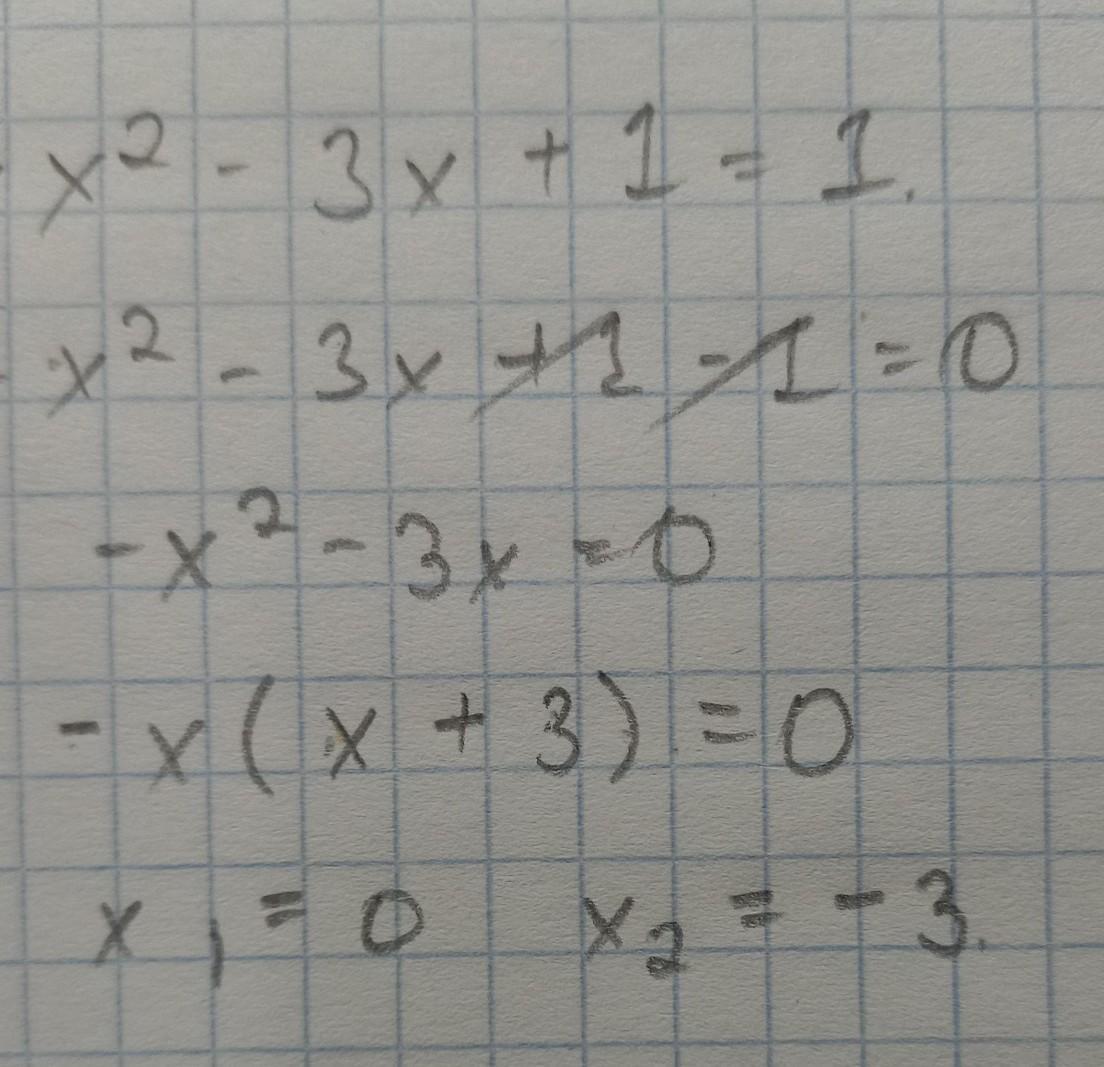 x² - 3x + 1 = 1.
x² - 3x + 1 - 1 = 0
-x² - 3x = 0
-x(x + 3) = 0
x₁ = 0 x₂ = -3.